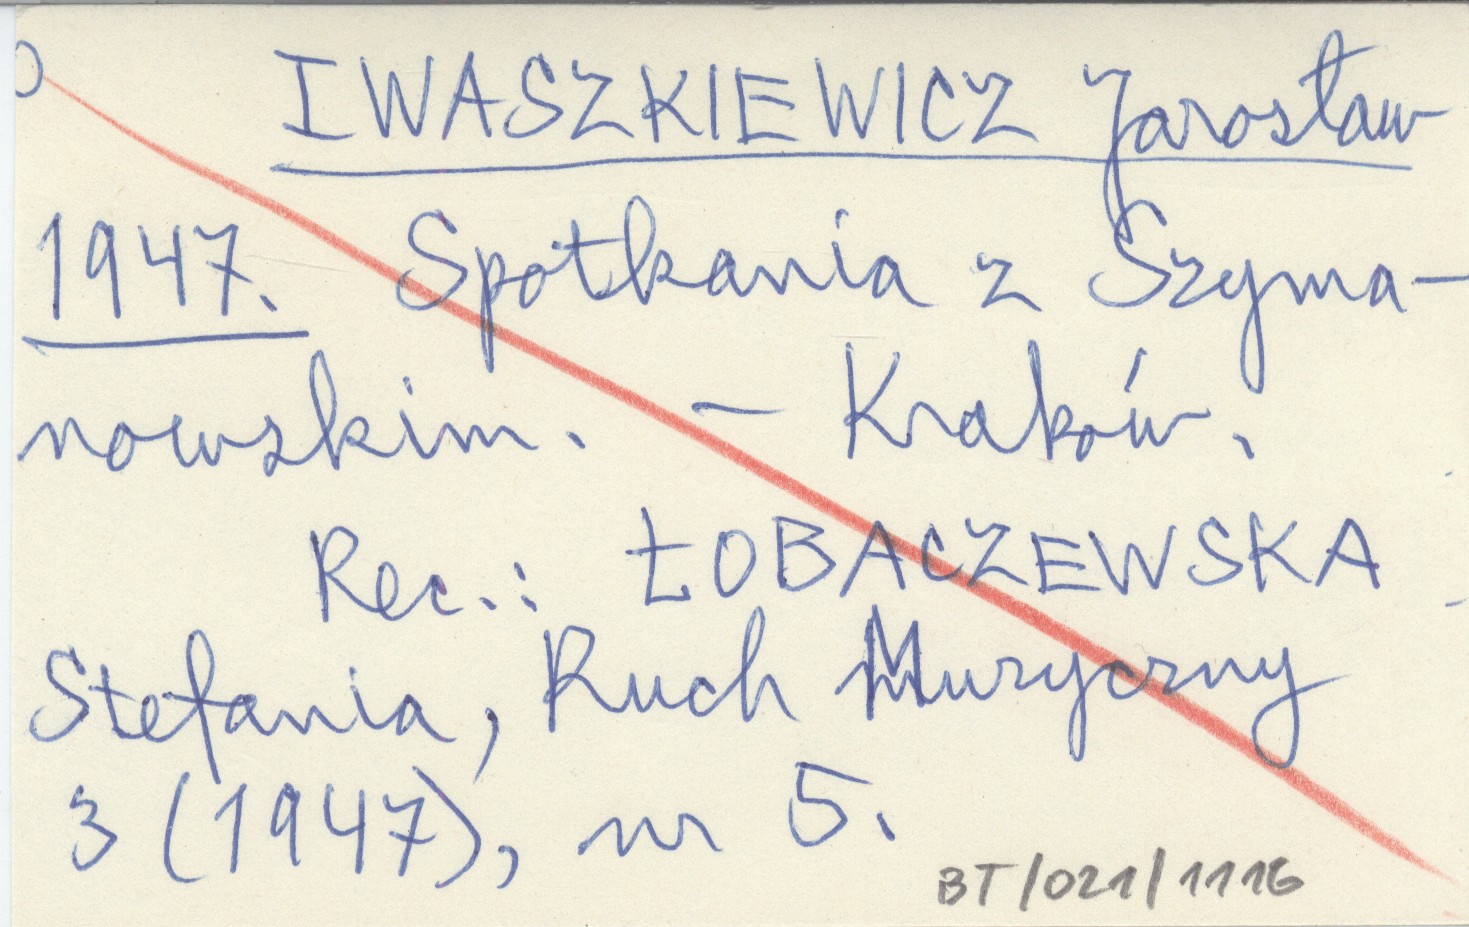 IWASZKIEWICZ Jarosław
1947. Spotkania z Szyma-
nowskim. – Kraków.
Rec.: ŁOBACZEWSKA
Stefania, Ruch Muzyczny
3 (1947), nr 5.
BT/021/1116